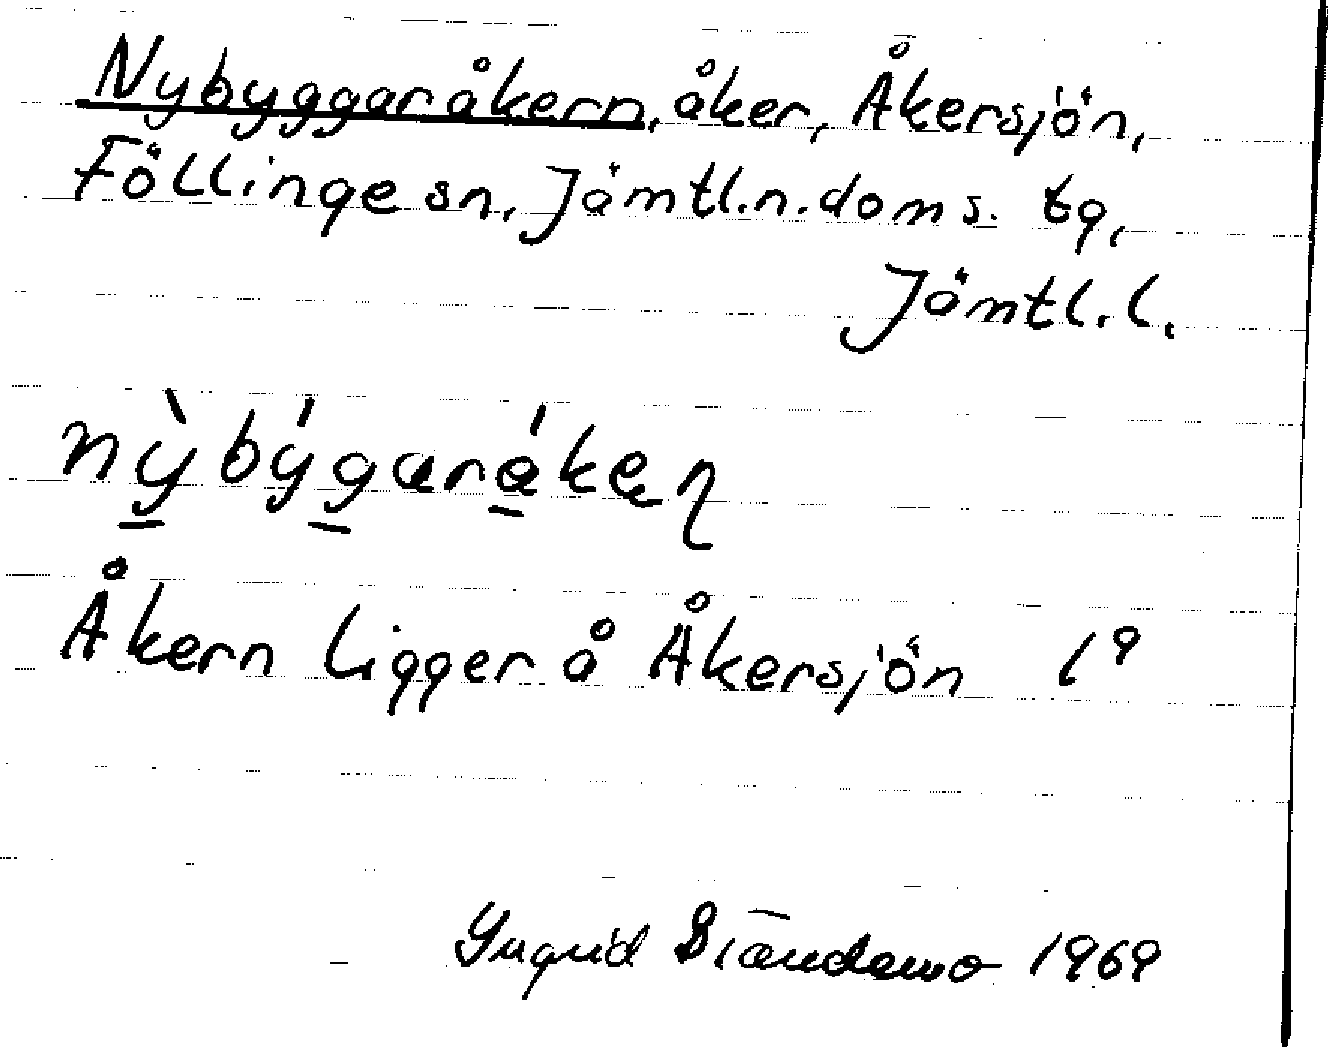 Nybyggaråkern, åker, Åkersjön,
Föllinge sn, Jämtl.n.doms. tg,
Jämtl.l.
nỳbýgaråkeɳ
Åkern ligger å Åkersjön 1⁹
Ingrid 1969